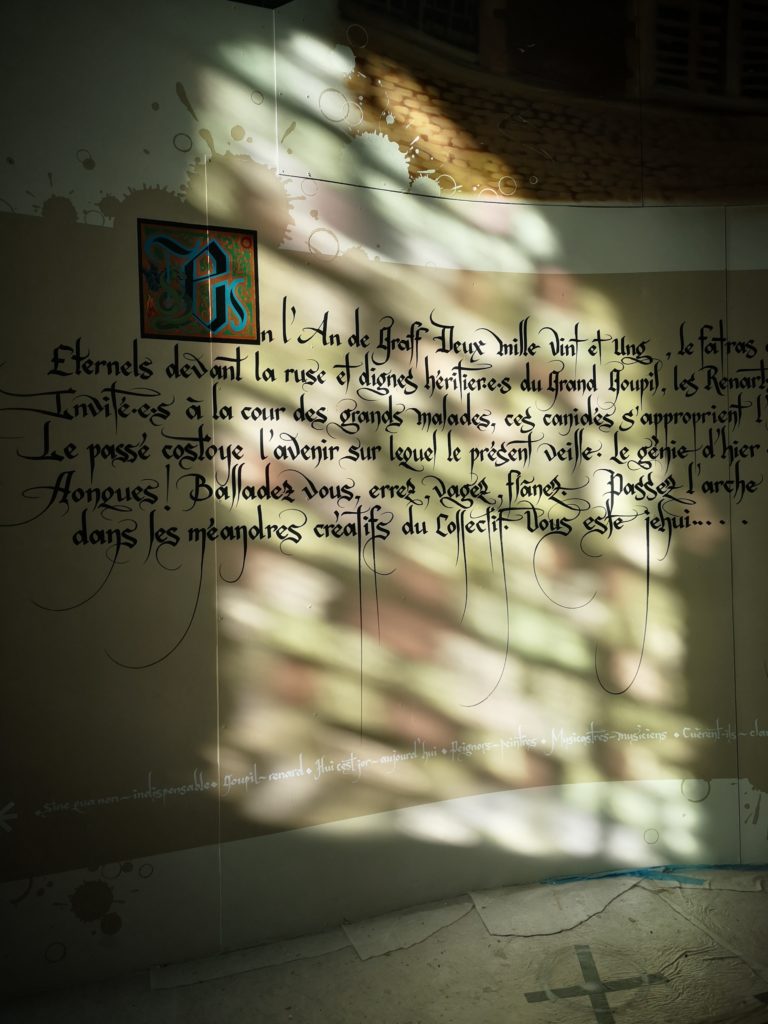 En l'An de Graff Deux mille vint et Ung , le fatras
Eternels devant la ruse et dignes héritier.e.s du Grand Goupil, les Renart
Invité.e.s à la cour des grands malades, ces canidés s'approprient l'
Le passé costoye l'avenir sur lequel le présent veille. Le génie d'hier
Aongues ! Balladez vous, errez, vagez, flânez. Passez l'arche
dans les méandres créatifs du Collectif. Vous este jehui....
Sine qua non ~ indispensable ◆ Goupil ~ renard ◆ Hui cest jor ~ aujourd'hui ◆ Peignors ~ peintres ◆ Musicastres ~ musiciens ◆ Cuèrent-ils ~